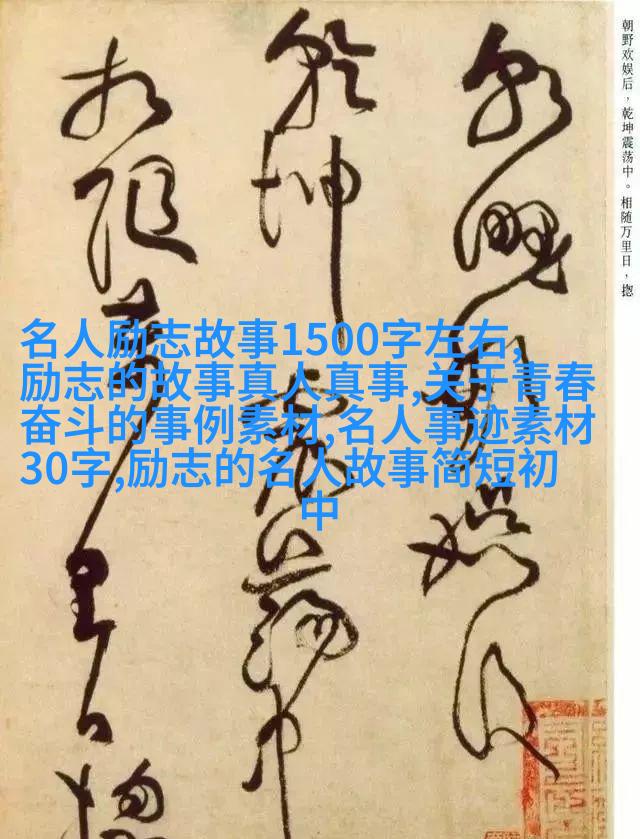 朝野欢娱后，乾坤震荡中。相随万里日，揔
朝野欢娱后
乾坤震荡中
相随万里日揔
名人励志故事1500字左右,
励志的故事真人真事,关于青春
奋斗的事例素材,名人事迹素材
30字,励志的名人故事简短初
中